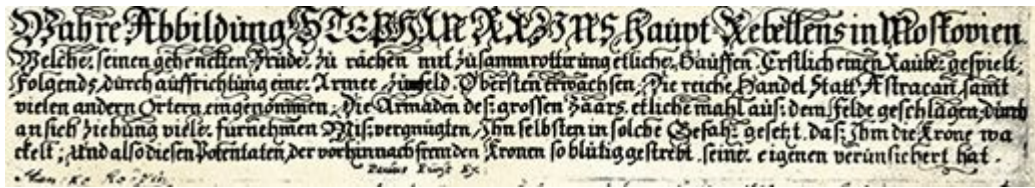 Wahre Abbildung STEPHAN RAZINS Haupt-Rebellens in Moskovien
Welcher seinen gehenckten Bruder zu rächen mit zusammrottirung etlicher Hauffen Erstlich einen Rauber gespielt,
Folgends durch auffrichtung einer Armee zum feld-Obersten erwachsen, Die reiche Handel Statt Astracan, samt
vielen andern Örtern eingenommen, Die Armaden des grossen Zaars etliche mahl aus dem Felde geschlagen, durch
an sich Ziehung vieler fürnehmen Misvergnügten, Ihn selbsten in solche Gefahr gesetzt das ihm die Krone wa
ckelt; Und also diesen Potentaten, der vorhin nach fremden Kronen so blütig gestrebt, seiner eigenen verunsichert hat.